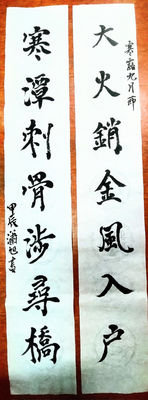 寒露九月節
大火銷金風入户
寒潭刺骨涉尋橋
甲辰蒲旭書